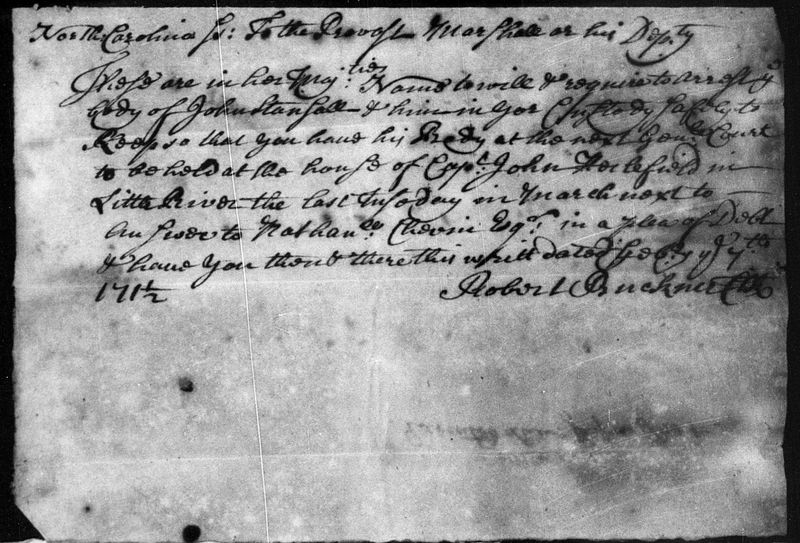 North Carolina ss: To the Provost Marshall or his Depty
These are in her Majties Name to will & require to arrest ye
body of John Stansall & him in yor Custody safely to
Keep so that you have his Body at the next Genll Court
to be held at the house of Capt. John Hecklefield in
Little River the last Tusoday in March next to
Answer to Nathanll Chevin Esqr. in a plea of Debt
& have you then & there this writt dated the
1711/2 Robert Buckner Clk